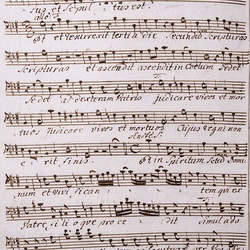 sus et Sepul tus est.
et Resurrexit tertia die Secundum Scripturas
Scripturas et ascendit ascendit in Coelum Sedet
Sedet ad dexteram Patris judicare vivos et mor
tuos judicare vivos et mortuos Cujus regni non
erit finis et in Spiritum
num et vivifican tem qui ex
Patre filioque proce dit Simul ado